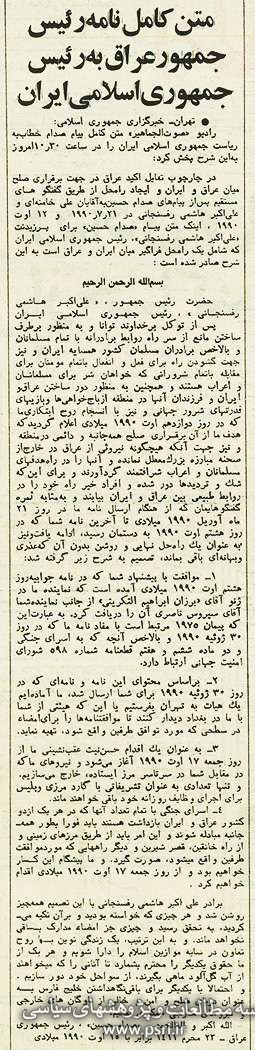 متن کامل نامه رئیس
جمهور عراق به رئیس
جمهوری اسلامی ایران
● تهران ـ خبرگزاری جمهوری اسلامی:
رادیو «صوت‌الجماهیر» متن کامل پیام صدام خطاب به
ریاست جمهوری اسلامی ایران را در ساعت ۱۰/۳۰ امروز
به این شرح پخش کرد:
در چارچوب تمایل اکید عراق در جهت برقراری صلح
میان عراق و ایران و ایجاد راه‌حل از طریق گفتگو های
مستقیم پس از پیام‌های صدام حسین به آقایان علی خامنه‌ای و
علی‌اکبر هاشمی رفسنجانی در ۲۱ر۷ر۱۹۹۰ و ۱۲ اوت
۱۹۹۰، اینک متن پیام «صدام حسین» برای پرزیدنت
«علی‌اکبر هاشمی رفسنجانی»، رئیس جمهوری اسلامی ایران
که شامل یک راه‌حل فراگیر میان ایران و عراق است به این
شرح صادر شده است:
بسم‌الله الرحمن الرحیم
حضرت رئیس جمهور، «علی‌اکبر هاشمی
رفسنجانی»، رئیس جمهوری اسلامی ایران
پس از توکل بر خداوند توانا و به منظور برطرف
ساختن مانع از سر راه روابط برادرانه با تمام مسلمانان
و بالاخص برادران مسلمان کشور همسایه ایران و نیز
جهت گشودن راه برای فعل و انفعال با تمام مومنان برای
مقابله با تمام شرورانی که خواهان شر برای مسلمانان
و اعراب هستند و همچنین به منظور دور ساختن عراق و
ایران و فرزندان آنها در منطقه از باج‌خواهی‌ها و بازیهای
قدرتهای شرور جهانی و نیز با انسجام روح ابتکاری ما
که در روز دوازدهم اوت ۱۹۹۰ میلادی اعلام گردید که
هدف ما از آن برقراری صلح همه‌جانبه و دائمی در منطقه
و نیز جهت آنکه هیچگونه نیروئی از عراق در خارج از
صحنه مبارزه بزرگ معطل نمانده و آنها را در راه هدفهای
مسلمانان و اعراب شرافتمند گردآورند و برای این که
شک و تردیدها دور شده و افراد خیر راه خود را در
روابط طبیعی بین عراق و ایران بیابند و به‌مثابه ثمره
گفتگوهایمان که از هنگام ارسال نامه ما در روز ۲۱
ماه آوریل ۱۹۹۰ میلادی تا آخرین نامه شما که در
روز هشتم اوت ۱۹۹۰ به دستمان رسید، ادامه یافت و نیز
به عنوان یک راه‌حل نهایی و روشن بدون آن که عذری
و بهانه‌ای باقی بماند، تصمیم به شرح زیر گرفته شد:
۱ـ موافقت با پیشنهاد شما که در نامه جوابیه روز
هشتم اوت ۱۹۹۰ میلادی آمده است که نماینده ما در
ژنو آقای «برزان ابراهیم التکریتی» از جانب نماینده شما
آقای سیروس ناصری آن را دریافت کرد. به عبارت این
که پیمان ۱۹۷۵ مرتبط است با مفاد نامه ما که در روز
۳۰ ژوئیه ۱۹۹۰ و بالاخص آنچه که به اسرای جنگی
و دو ماده ششم و هفتم قطعنامه شماره ۵۹۸ شورای
امنیت جهانی ارتباط دارد.
۲ـ براساس محتوای این نامه و نامه‌ای که در
روز ۳۰ ژوئیه ۱۹۹۰ برای شما ارسال شد، ما آماده‌ایم
یک هیات به تهران بفرستیم یا این که هیئتی از شما
با ما در بغداد دیدار کنند تا موافقتنامه‌ها را برای امضاء
در سطحی که مورد توافق طرفین واقع شود، تهیه نماید.
۳ـ به عنوان یک اقدام حسن‌نیت عقب‌نشینی ما از
روز جمعه ۱۷ اوت ۱۹۹۰ آغاز می‌شود و نیروهای ما که
در مقابل شما در سرتاسر مرز ایستاده، خارج می‌سازیم،
و تنها تعدادی به عنوان تشریفاتی با گارد مرزی و پلیس
برای اجرای وظایف روزانه خود باقی خواهند ماند.
۴ـ اسرای جنگی با تمام تعداد آنها که در هر یک از دو
کشور عراق و ایران بازداشت هستند باید فورا بطور همه
جانبه مبادله شوند و این امر باید از طریق مرزهای زمینی و
از راه خانقین، قصر شیرین و دیگر راههایی که مورد موافقت
طرفین واقع میشود، صورت گیرد. و ما پیشگام این کار
خواهیم بود و از روز جمعه ۱۷ اوت ۱۹۹۰ میلادی اقدام
خواهیم کرد.
برادر علی اکبر هاشمی رفسنجانی با این تصمیم همه‌چیز
روشن شد و هر چیزی که خواسته بودید و بر آن تکیه می
کردید، به تحقق رسید و چیزی جز امضاء مدارک باقی
نخواهد ماند. و به این ترتیب، یک زندگی نوین به روح
تعاون در سایه موازین اسلام را دارا شویم و هر یک از
ما حقوق یکدیگر را محترم بشمارد تا آنانی را که میخواهند
از آب گل‌آلود ماهی بگیرند، از سواحل خود دور سازیم.
و احتمالا با یکدیگر برای باقی‌نگاهداشتن خلیج فارس به
موسسه مطالعات و پژوهشهای سیاسی
www.psri.ir
عراق ـ ۲۳ محرم ۱۴۱۱ برابر با ۱۵ اوت ۱۹۹۰ میلادی